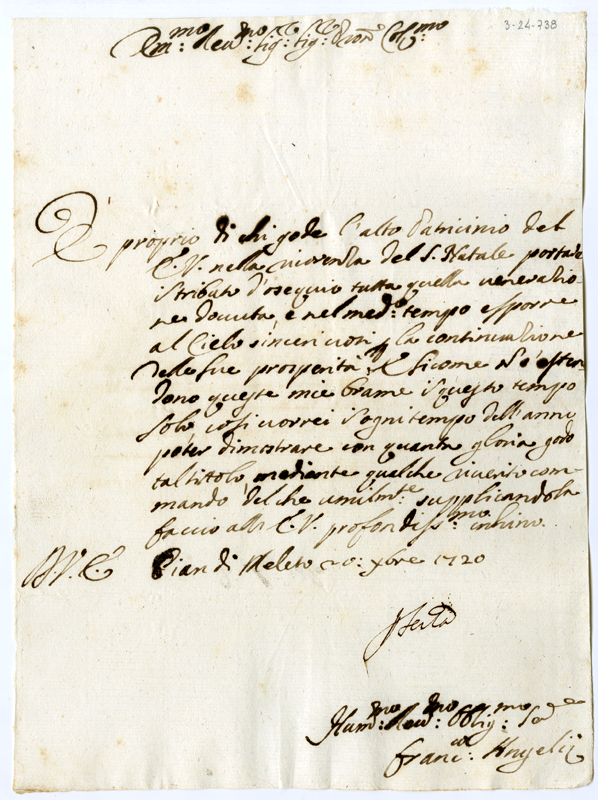 3-24-738
Em:mo Reu:mo Sig: Sig: Pron Col:mo
È proprio di chi gode l'alto Patricinio del
E.V. nella ricorenza del S. Natale portarle
tributo d'osequio tutta quella veneratio-
ne douuta, e nel med:o tempo esporre
al Cielo sinceri uoti la continuatione
delle sue prosperità, E sicome
dono queste mie brame questo tempo
solo cosi uorrei ogni tempo dell'anno
poter dimostrare con quanta gloria godo
tal titolo mediente qualche riuerito com-
mando del che umilm:te supplicandola
faccio all E.V. profondiss:mo inchino.
D. V. E. Pian di Meleto 20: xbre 1720
Hum:mo Deu:mo Oblig:mo
Franc:co Angelij